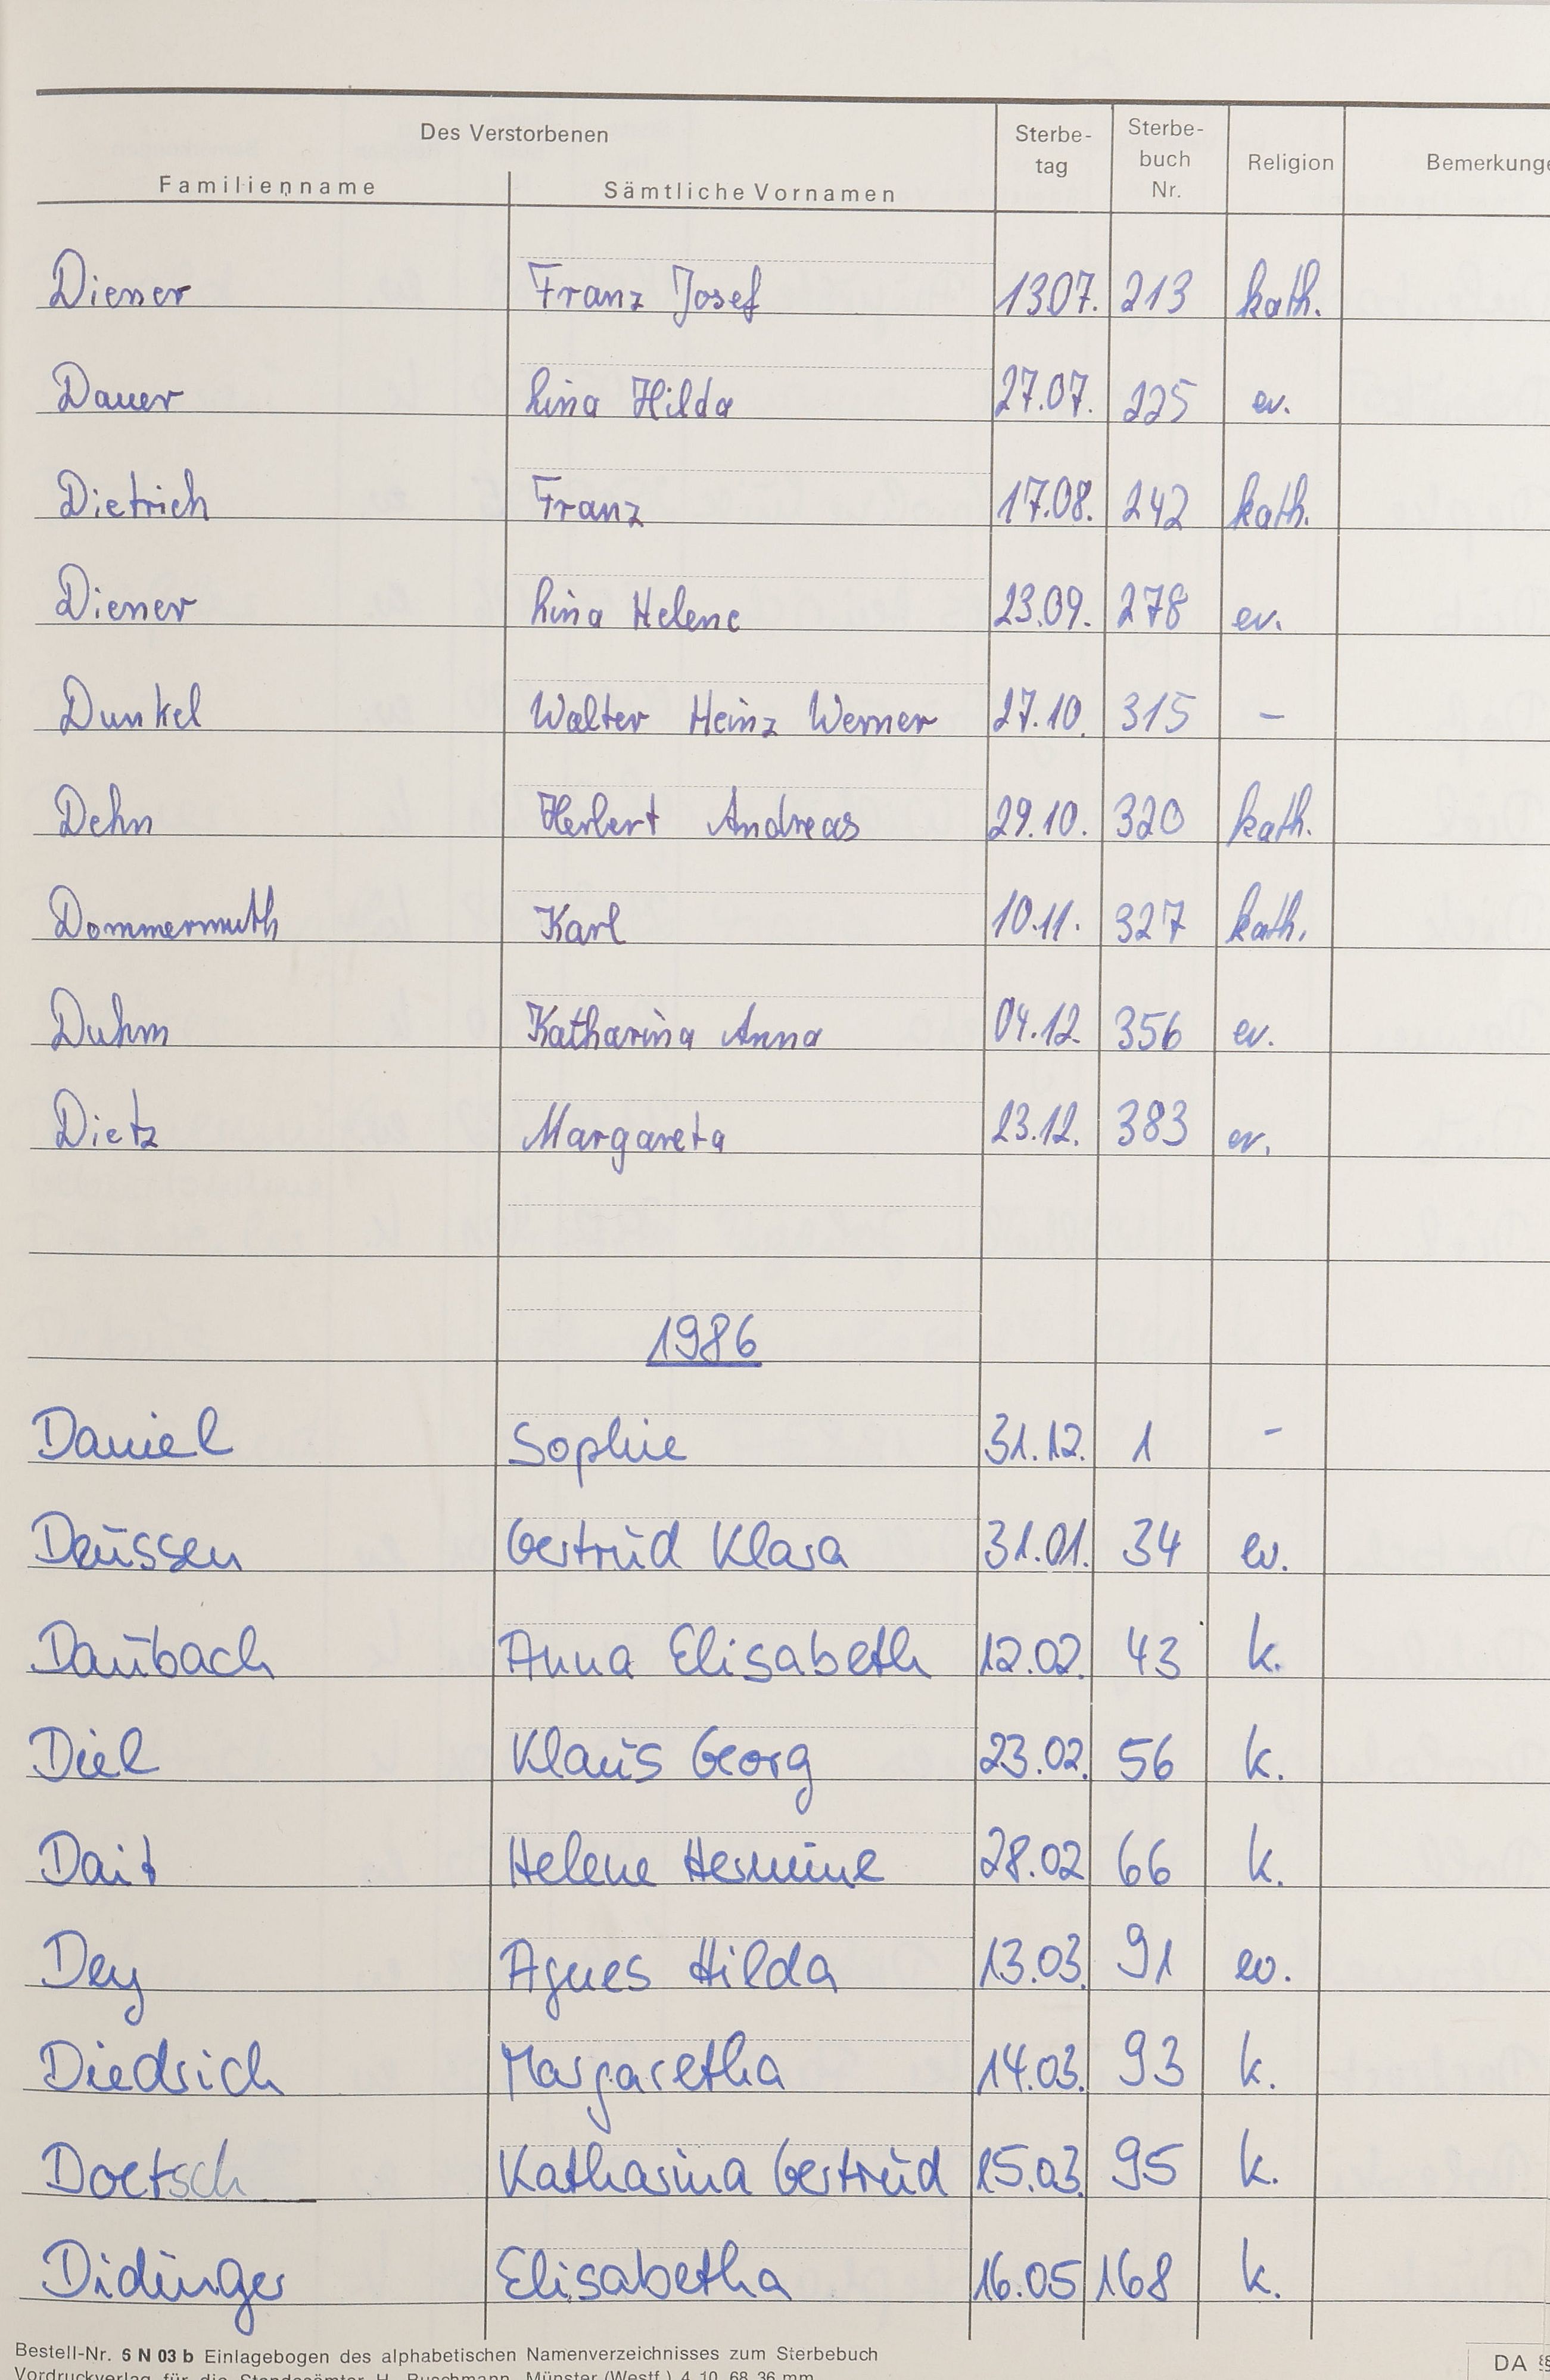 Des Verstorbenen
Familienname Sämtliche Vornamen Sterbe-tag Sterbe-buch Nr. Religion
Diener Franz Josef 1307. 213 kath.
Dauer Lina Hilda 27.07. 225 ev.
Dietrich Franz 17.08. 242 kath.
Diener Lina Helene 23.09. 278 ev.
Dunkel Walter Heinz Werner 27.10. 315 –
Dehn Herbert Andreas 29.10. 320 kath.
Dommermuth Karl 10.11. 327 kath.
Duhm Katharina Anna 04.12. 356 ev.
Dietz Margareta 23.12. 383 ev.
1986
Daniel Sophie 31.12. 1 –
Deussen Gertrud Klara 31.01. 34 ev.
Daubach Anna Elisabeth 12.02. 43 k.
Diel Klaus Georg 23.02. 56 k.
Helene Hermine 28.02 66 k.
Dey Agnes Hilda 13.03. 91 ev.
Diedrich Margaretha 14.03. 93 k.
Doetsch Katharina Gertrud 15.03. 95 k.
Didinger Elisabetha 16.05 168 k.
Bestell-Nr. 6 N 03 b Einlagebogen des alphabetischen Namenverzeichnisses zum Sterbebuch
Vordruckverlag für die Standesämter H. Buschmann, Münster (Westf.) 4 10 68 36 mm
DA